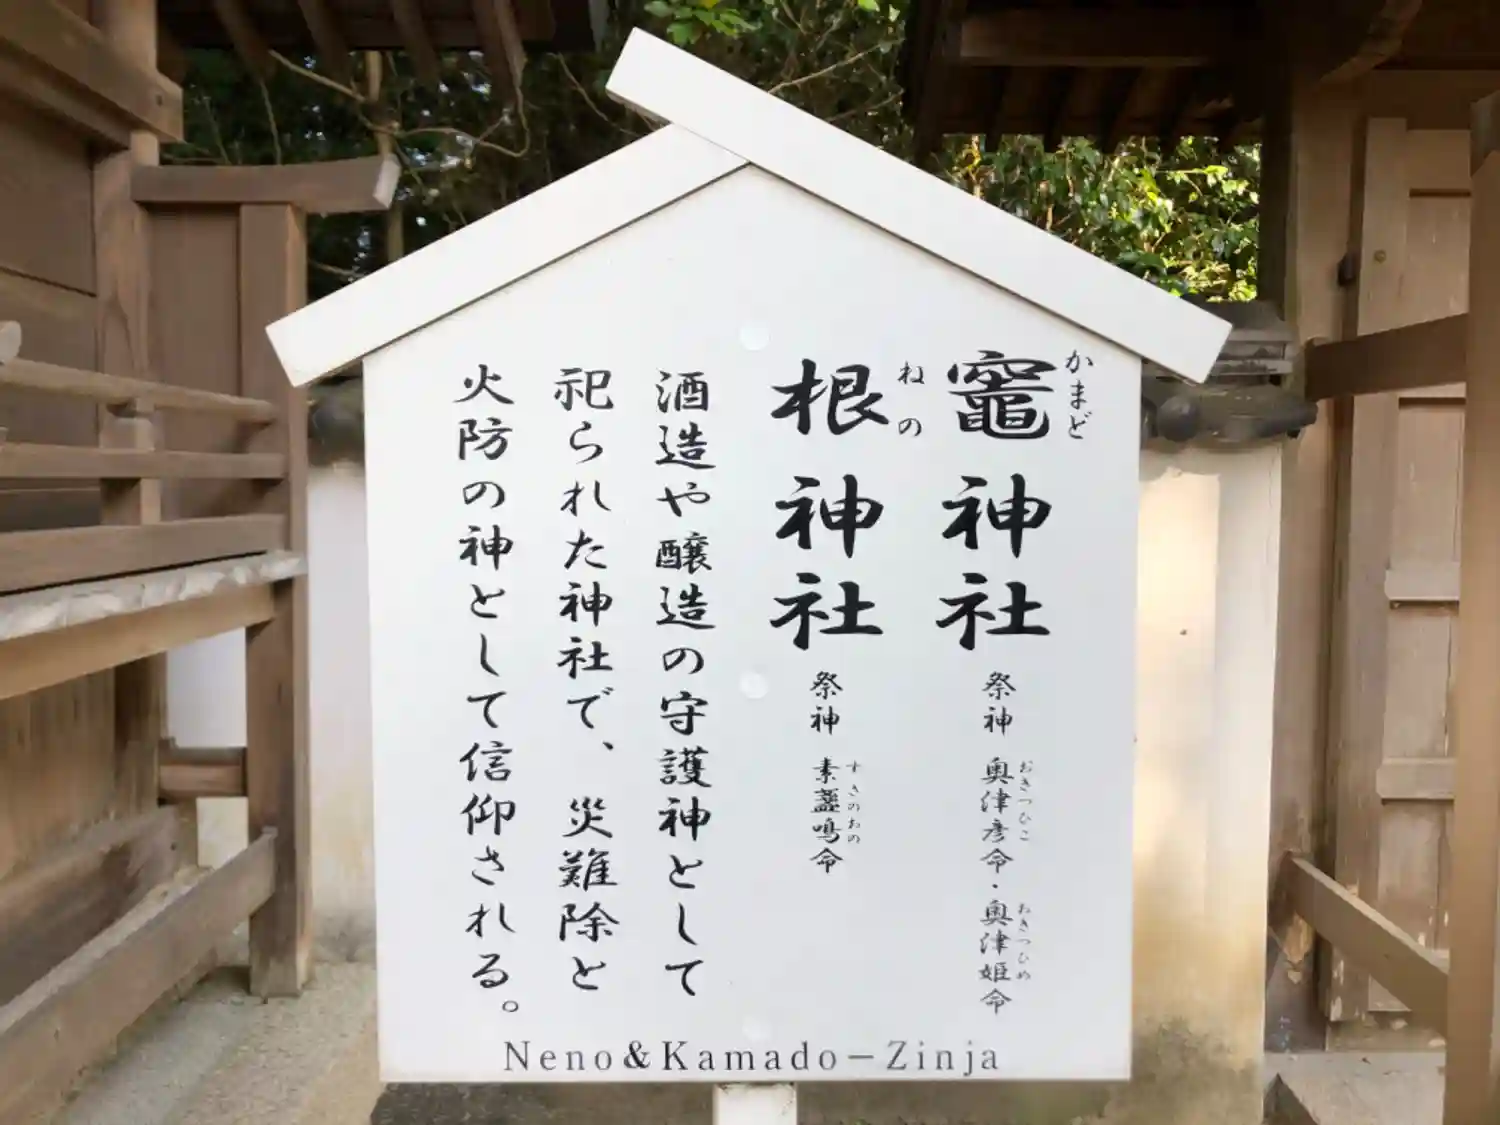 竈神社 祭神 奥津彦命・奥津姫命
かまど
おきつひこ
おきつひめ
根神社 祭神 素盞鳴命
ねの
すさのおの
酒造や醸造の守護神として
祀られた神社で、災難除と
火防の神として信仰される。
Neno&Kamado-Zinja